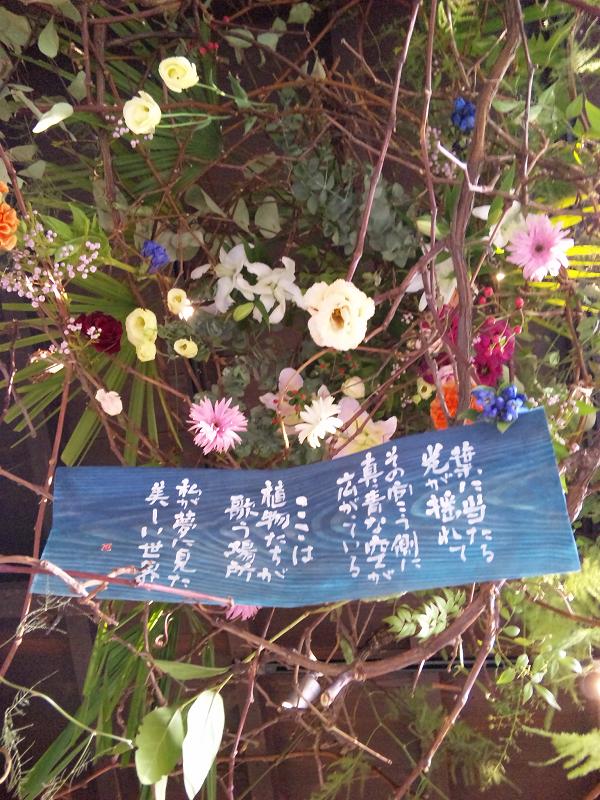 葉に当たる
光が揺れて
その向こう側に
真青な空が
広がっている
ここは
植物たちが
歌う場所
私が夢で見た
美しい世界